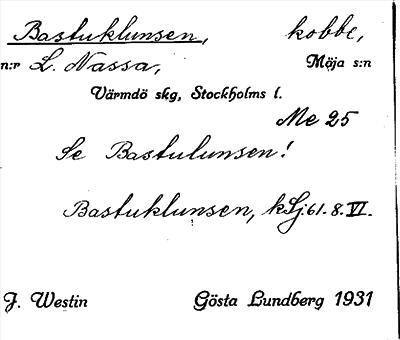 Bastuklunsen, kobbe,
n:r L. Nassa, Möja s:n
Värmdö skg, Stockholms l.
Me 25
Se Bastulunsen!
Bastuklunsen, k Sj. 61. 8. VI.
J. Westin Gösta Lundberg 1931